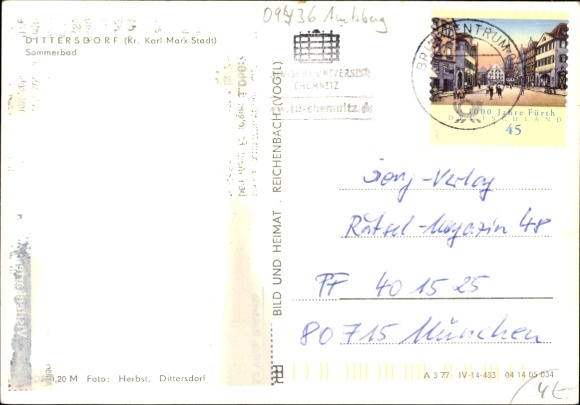 09436 Amtsberg
DITTERSDORF (Kr. Karl-Marx-Stadt)
Sommerbad
CHEMNITZ
www.tu-chemnitz.de
BRIEFZENTRUM
1000 Jahre Fürth
DEUTSCHLAND
45
BILD UND HEIMAT · REICHENBACH (VOGTL)
Rätsel-Magazin 48
PF 40 15 25
80715 München
0,20 M Foto: Herbst, Dittersdorf
A 3 77 IV-14-483 04 14 05 034